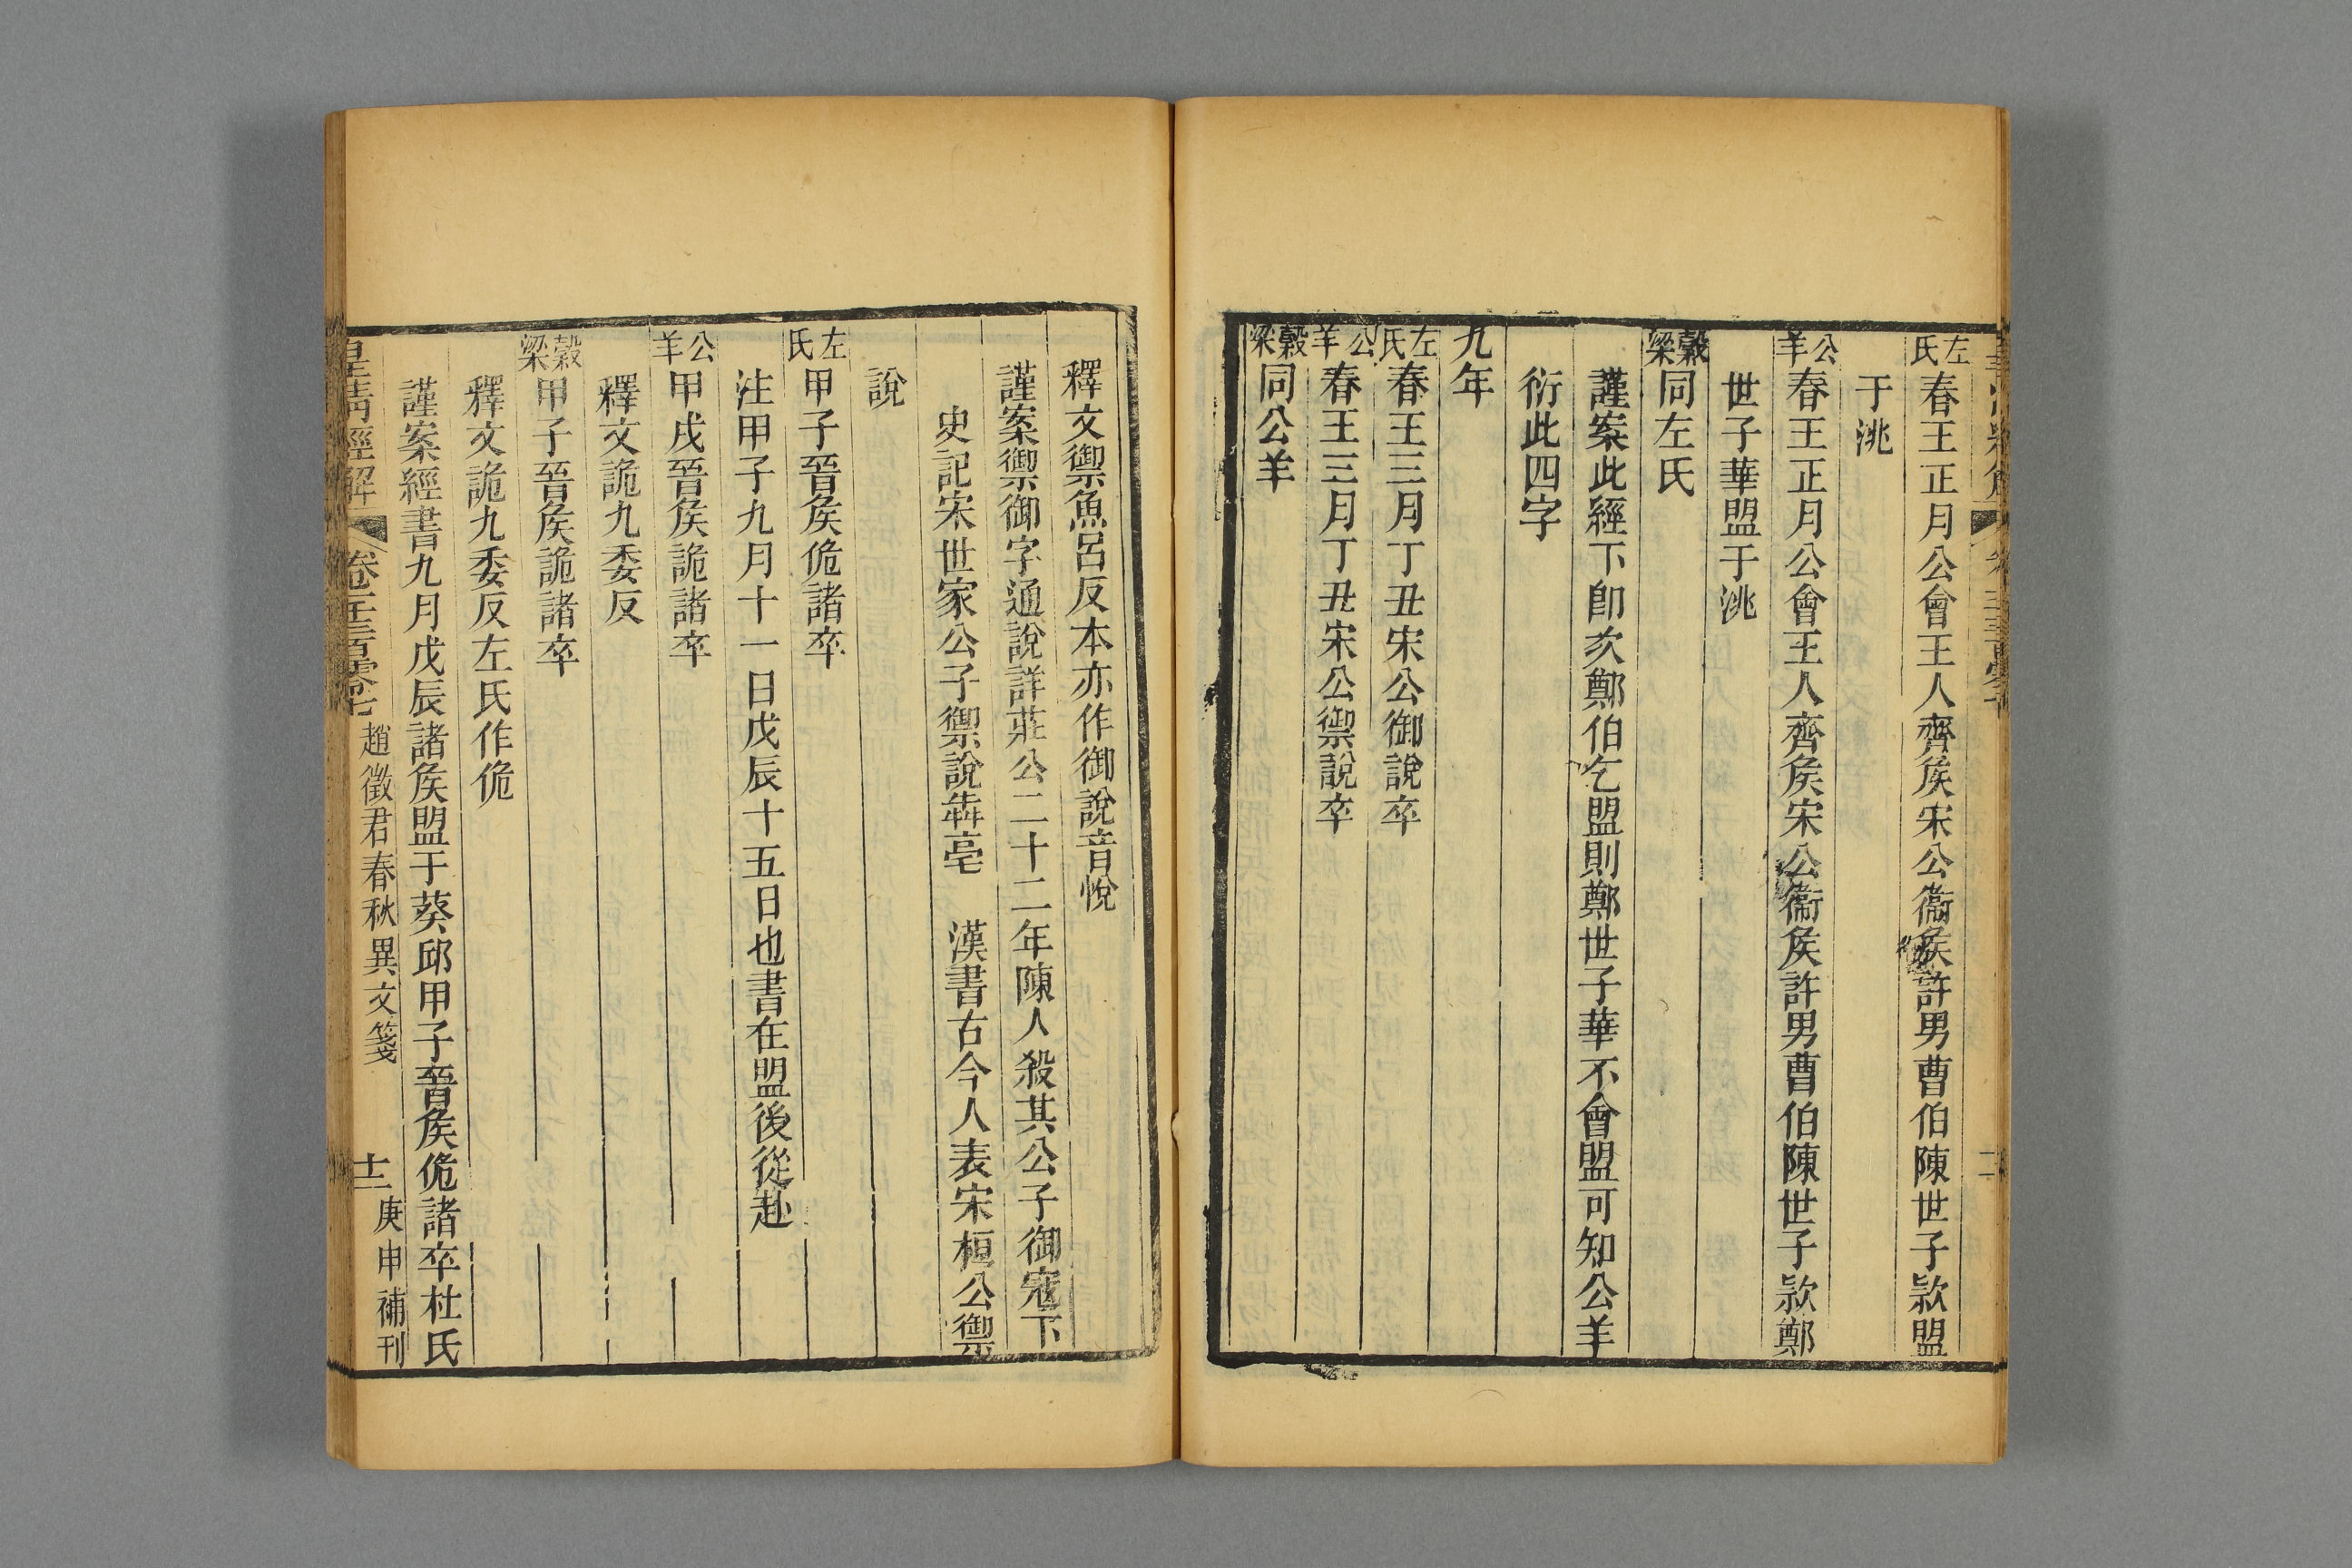 左氏春王正月公會王人齊矦宋公衞矦許男曹伯陳世子款盟
于洮
公羊春王正月公會王人齊矦宋公衞矦許男曹伯陳世子款鄭
世子華盟于洮
穀梁同左氏
謹案此經下卽次鄭伯乞盟則鄭世子華不會盟可知公羊
衍此四字
九年
左氏春王三月丁丑宋公御說卒
公羊春王三月丁丑宋公禦說卒
穀梁同公羊
釋文禦魚呂反本亦作御說音悅
謹案禦御字通說詳莊公二十二年陳人殺其公子御寇下
史記宋世家公子禦說犇亳　漢書古今人表宋桓公禦
說
左氏甲子晉矦佹諸卒
注甲子九月十一日戊辰十五日也書在盟後從赴
公羊甲戌晉矦詭諸卒
釋文詭九委反
穀梁甲子晉矦詭諸卒
釋文詭九委反左氏作佹
謹案經書九月戊辰諸矦盟于葵邱甲子晉矦佹諸卒杜氏
皇清經解　卷一千三百零七　趙徵君春秋異文箋　十二　庚申補刊